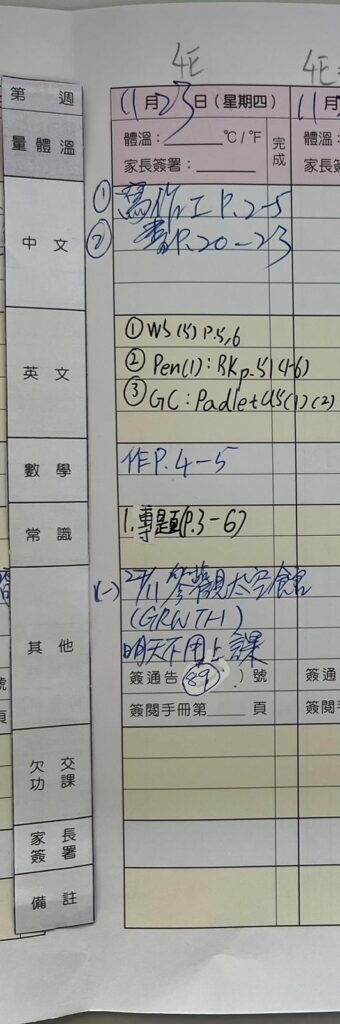 4E
4E
第 週
11月23日(星期四)
11月
量體溫
體溫:______°C/°F
家長簽署:______
完成
體溫:
家長簽
中文
① 寫作工P.2-5
② 書P.20-23
英文
① WS(15) P.5,6
② Pen(1): RK p.51(4-6)
③ GC: Padlet U5(1)(2)
數學
作P.4-5
常識
1.專題(P.3-6)
其他
(一) 27/11 參觀太空館
(GRWTH)
明天不用上課
簽通告(89)號
簽閱手冊第____頁
簽通
簽閱手
號
頁
欠交功課
家長簽署
備註